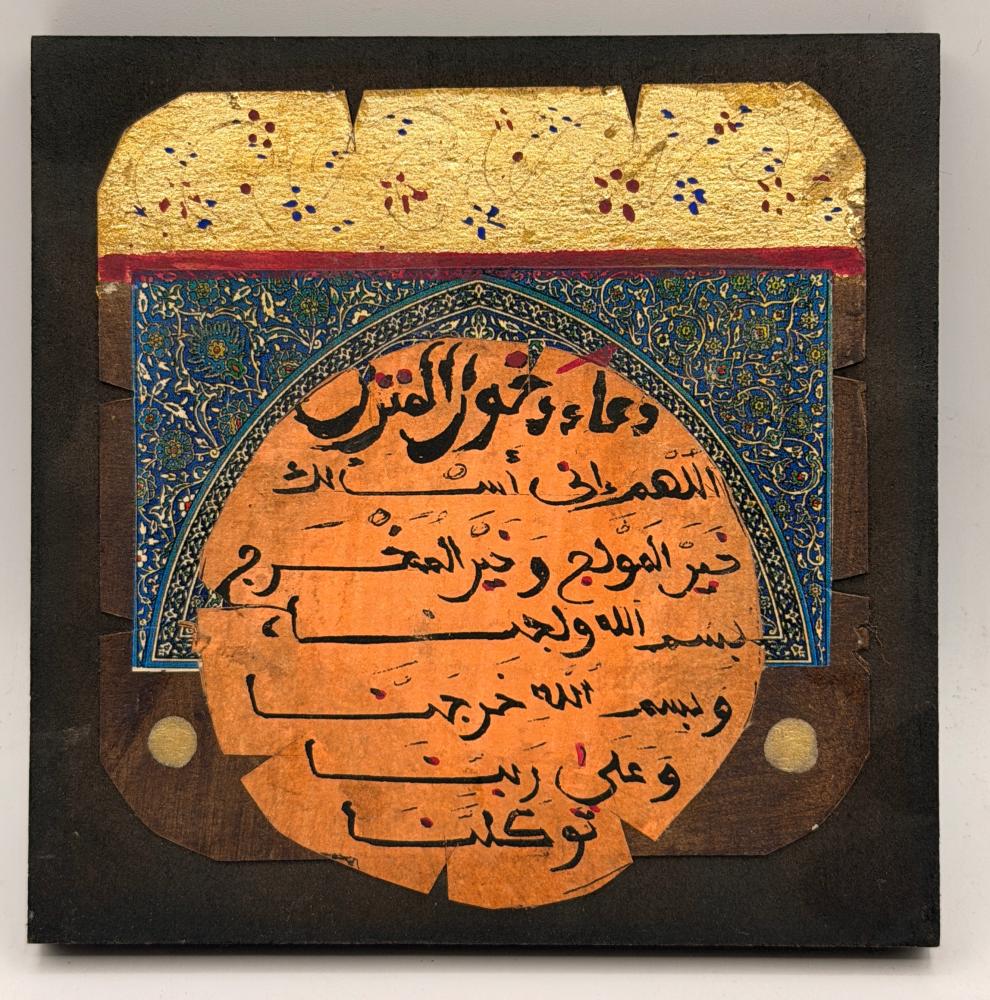 دعاء دخول المنزل
اللهم إني أسالك
خير المولج و خير المخرج
بسم الله ولجنا،
و بسم الله خرجنا
و على ربنا
توكلنا